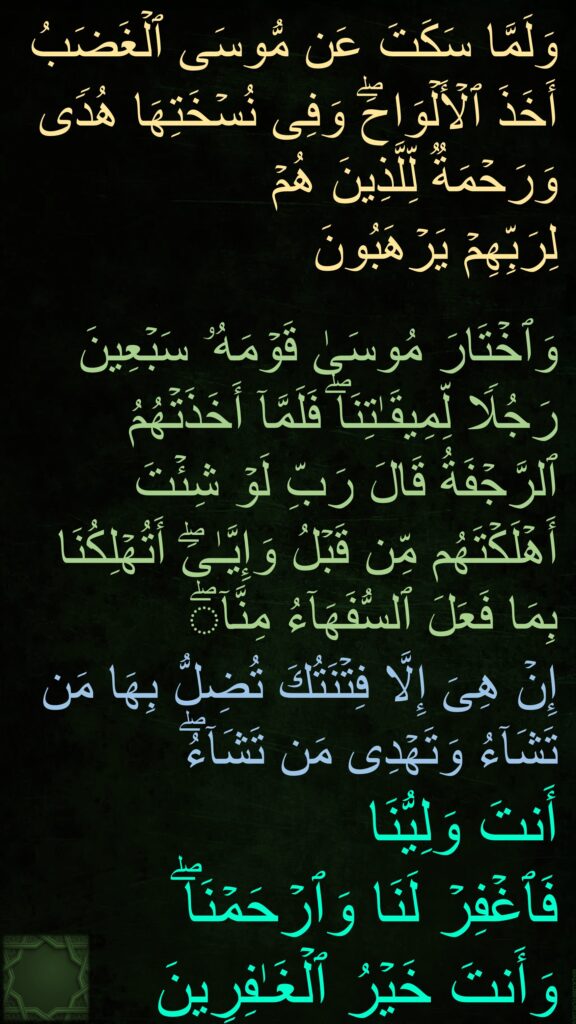 وَلَمَّا سَكَتَ عَن مُّوسَى ٱلۡغَضَبُ
أَخَذَ ٱلۡأَلۡوَاحَۖ وَفِى نُسۡخَتِهَا هُدًى
وَرَحۡمَةٌ لِّلَّذِينَ هُمۡ
لِرَبِّهِمۡ يَرۡهَبُونَ
وَٱخۡتَارَ مُوسَىٰ قَوۡمَهُۥ سَبۡعِينَ
رَجُلًا لِّمِيقَـٰتِنَاۖ فَلَمَّآ أَخَذَتۡهُمُ
ٱلرَّجۡفَةُ قَالَ رَبِّ لَوۡ شِئۡتَ
أَهۡلَكۡتَهُم مِّن قَبۡلُ وَإِيَّـٰىَۖ أَتُهۡلِكُنَا
بِمَا فَعَلَ ٱلسُّفَهَآءُ مِنَّآۖ
إِنۡ هِىَ إِلَّا فِتۡنَتُكَ تُضِلُّ بِهَا مَن
تَشَآءُ وَتَهۡدِى مَن تَشَآءُۖ
أَنتَ وَلِيُّنَا
فَٱغۡفِرۡ لَنَا وَٱرۡحَمۡنَاۖ
وَأَنتَ خَيۡرُ ٱلۡغَـٰفِرِينَ